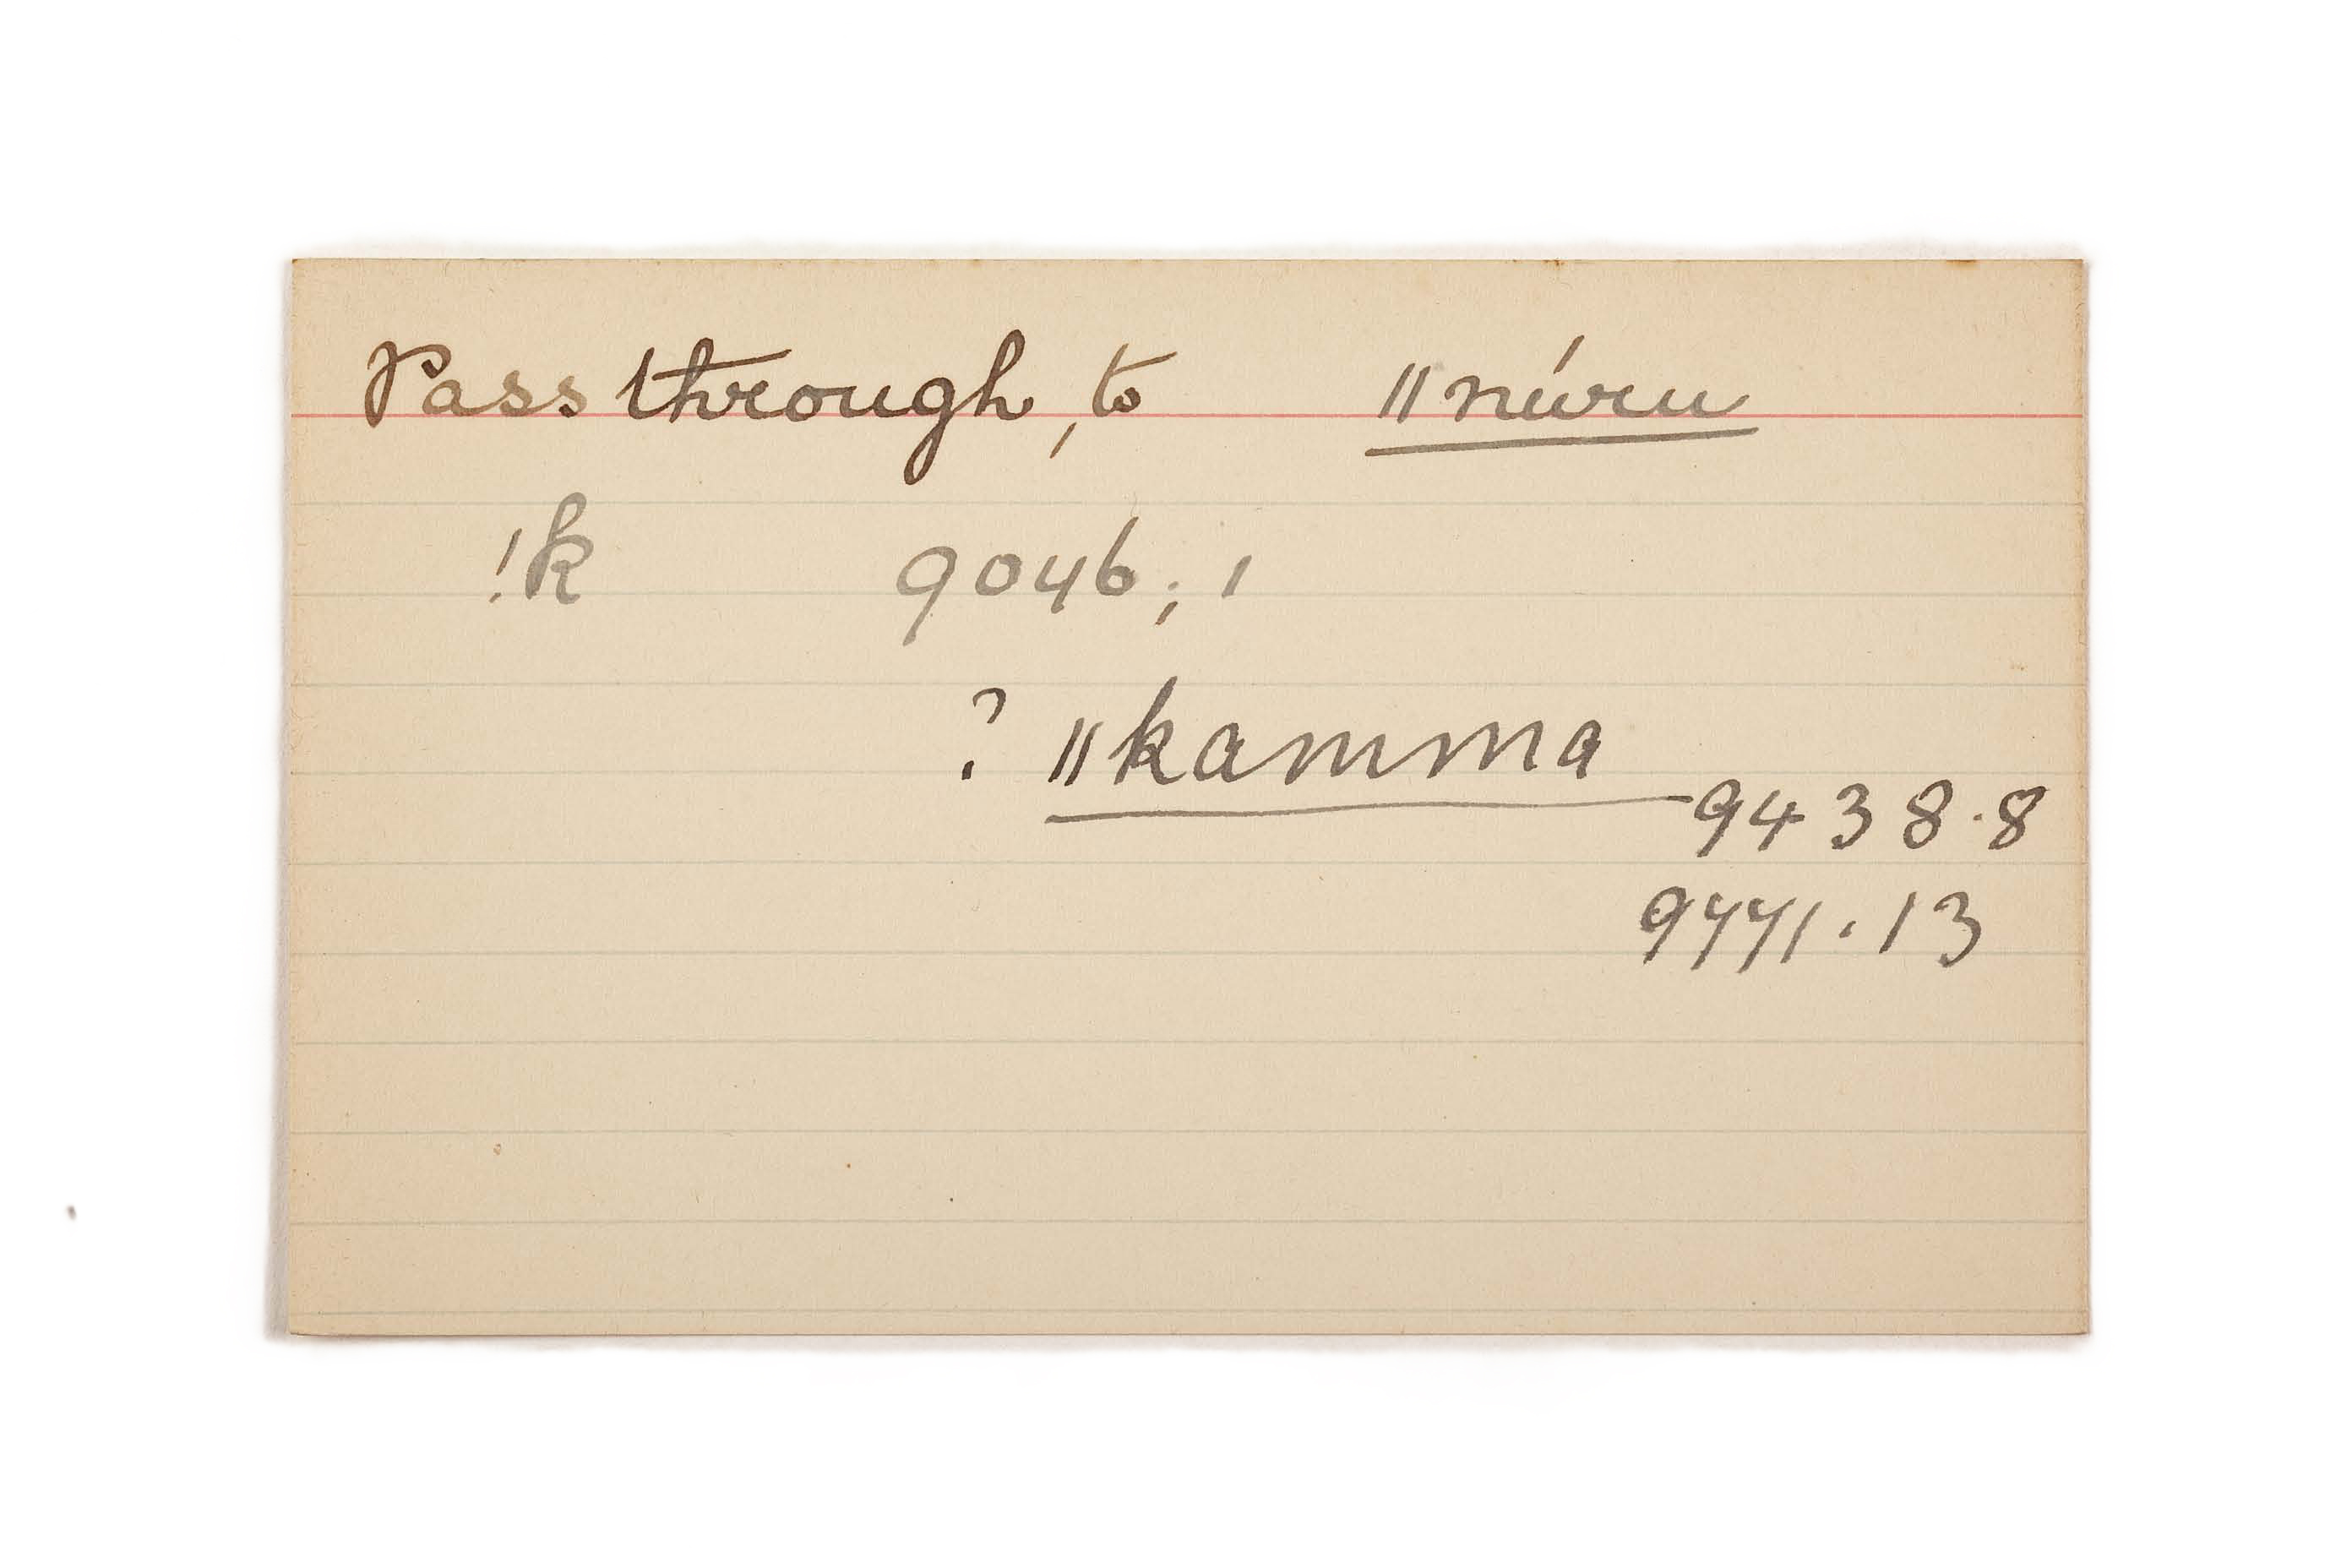 Pass through, to ǁnúru
!k 9046; 1
? ǁkamma
9438.8
9441.13